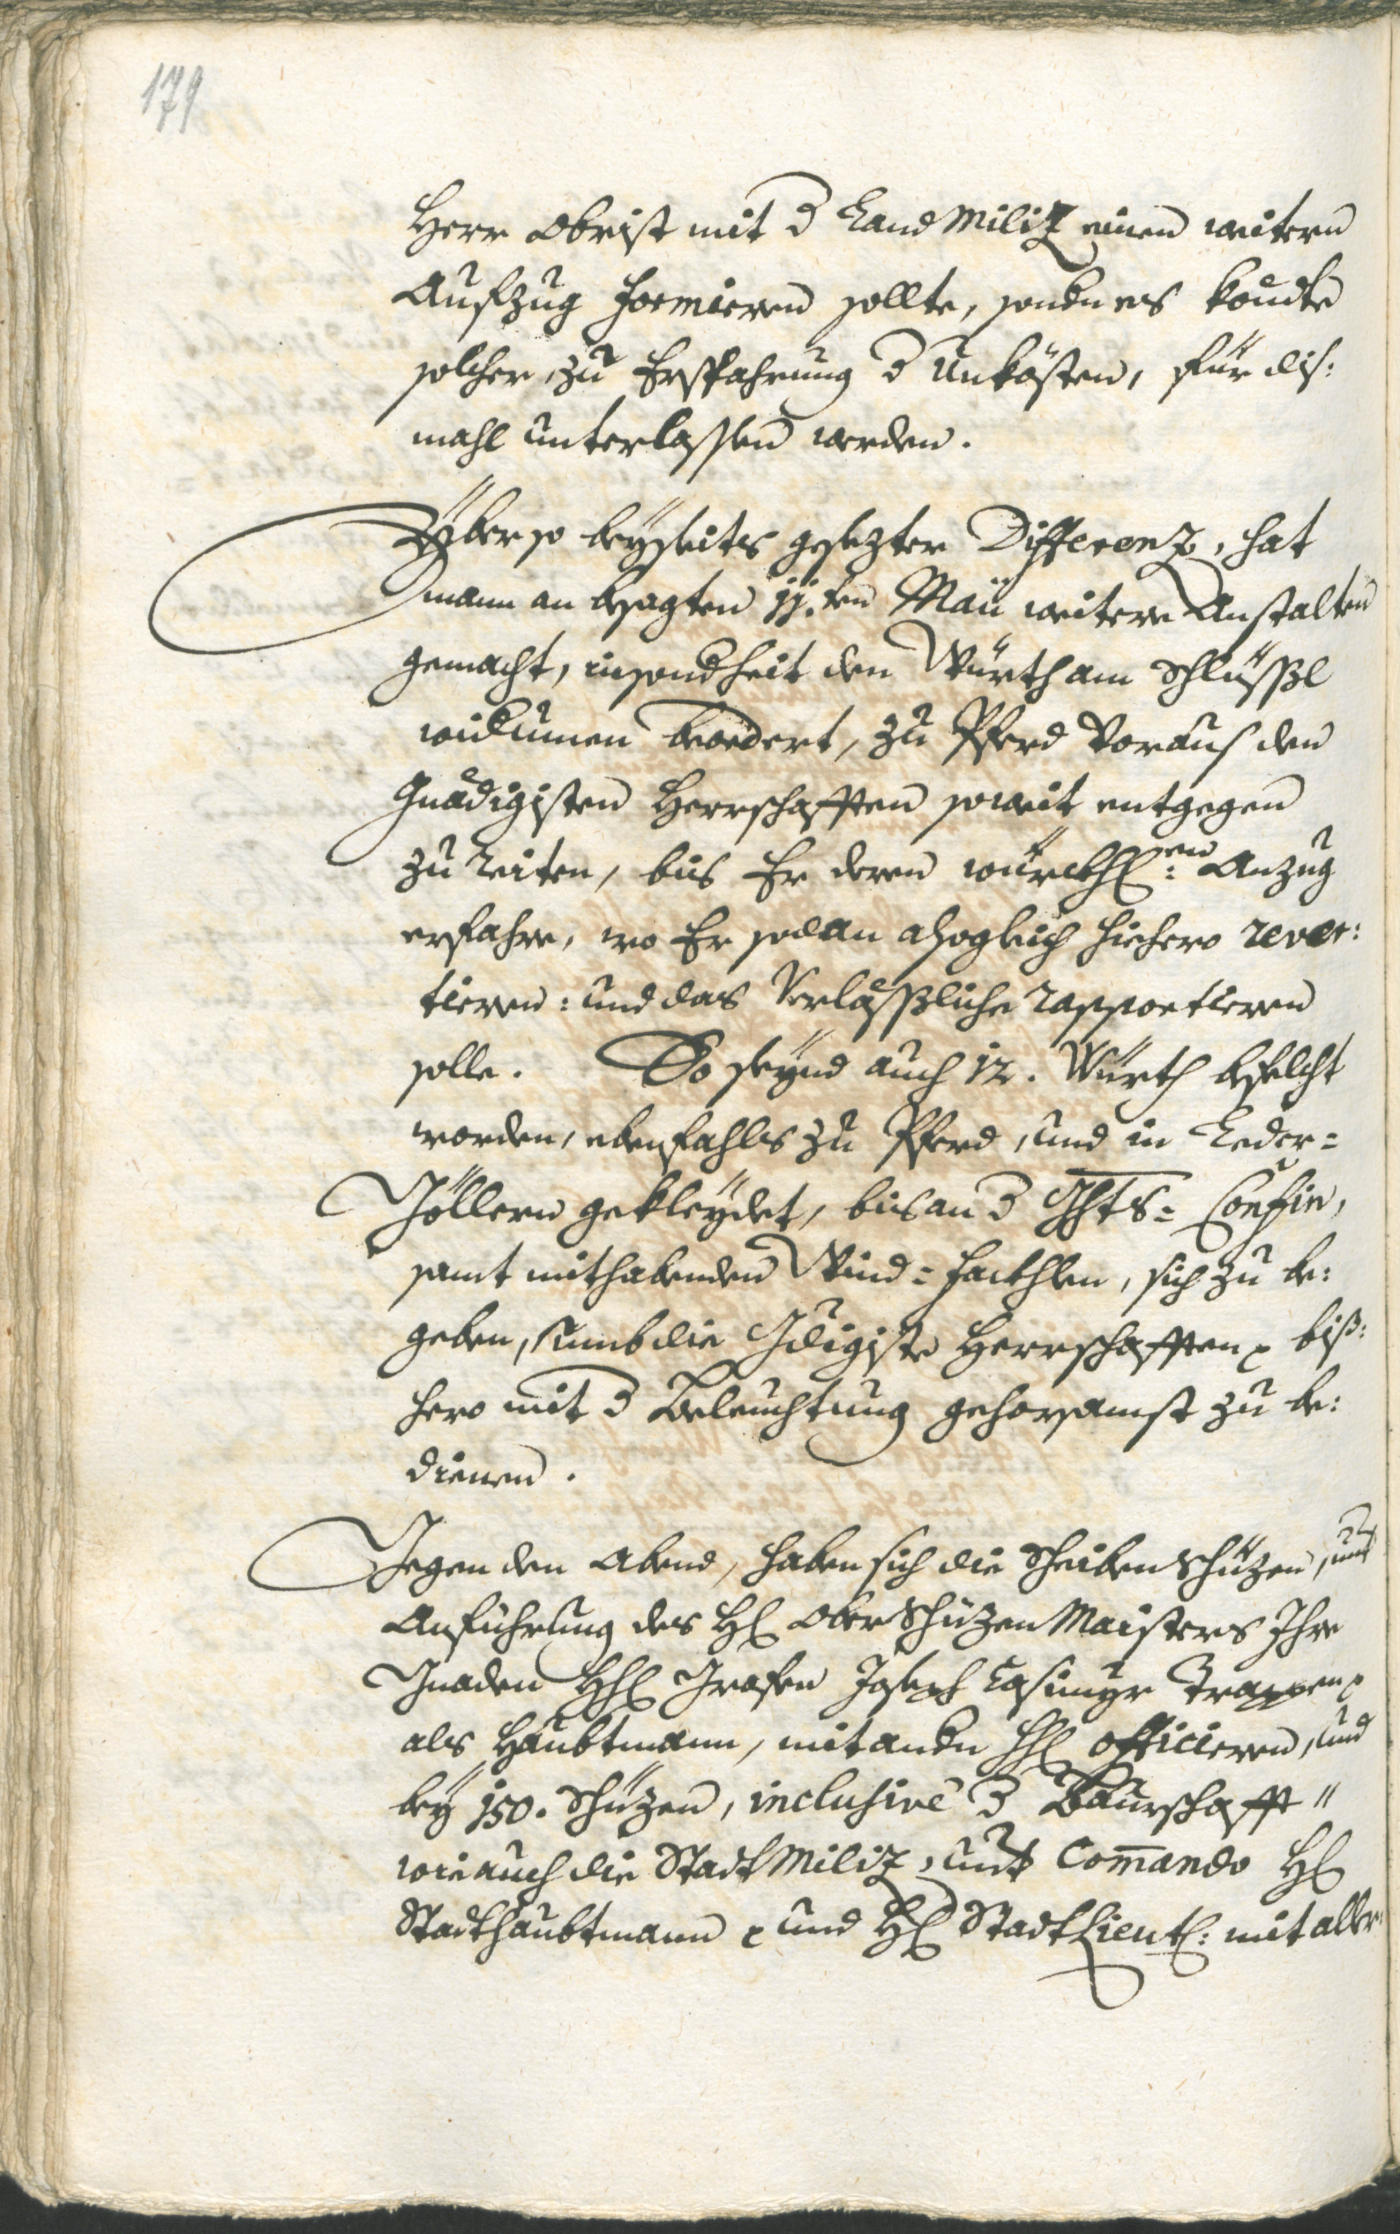 179
Herr Obrist mit d Land Miliz einen weitern
Aufzug formieren sollte, sondern es kondte
solcher, zu Ersfahrung d Unkösten, für dis:
mahl unterlassen werden.
Yber so beyseits gesezter Differenz, hat
mann an besagten 11.ten Maii weitere Anstalten
gemacht, insondheit den Würth am Schlüssl
widumen beordert, zu Pferd voraus den
Gnädigisten Herrschafften soweit entgegen
zu reiten, bis Er deren würckhl:en Anzug
erfahre, wo Er sodan alsogleich hiehero rever:
tieren: und das Verlässliche rapportieren
solle. So seynd auch 12. Würth befelcht
worden, ebenfahls zu Pferd, und in Leder=
Göllern gekleydet, bis an d Ghts= Confin,
samt mithabenden Wind=fackhlen, sich zu be:
geben, umb die Gdigiste Herrschafften biß:
hero mit d Beleuchtung gehorsamst zu be:
dienen.
Gegen den Abend, haben sich die Scheibenschüzen, unt
Anführung des Hl Ober Schüzen Maisters Ihre
Gnaden Hl Grafen Joseph Casimyr Trappen
als Haubtmann, mit andn Hl officieren, und
bey 150. Schüzen, inclusivé d Baurschafft
wie auch die Stadt Miliz, unt Com̄ando Hl
Stadthaubtmann und Hl Stadt Lieutl: mit aller